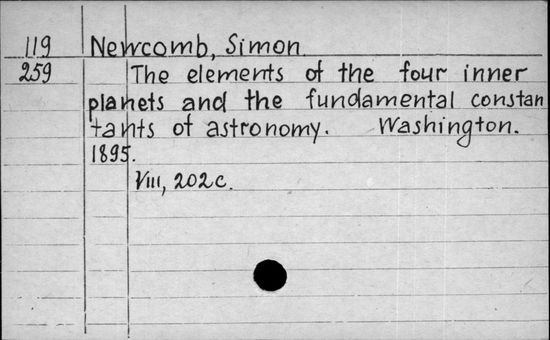 119 Newcomb, Simon
259 The elements of the four inner
planets and the fundamental constan
tants of astronomy. Washington.
1895.
VIII, 202 c.